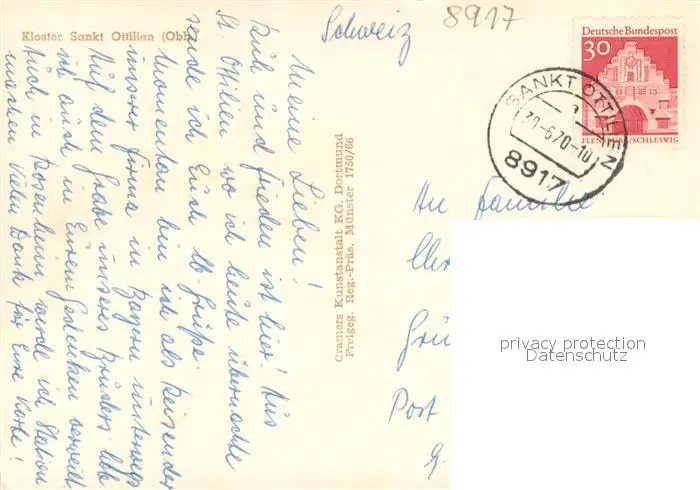 Kloster Sankt Ottilien (Obb.)
Schweiz
8917
Deutsche Bundespost
30
FLENSBURG/SCHLESWIG
SANKT OTTILIEN
-6.70-10
8917
Meine Lieben!
Ruh und Frieden ist hier! Aus
St. Ottilien wo ich heute übernachte
sende ich Euch lb. Grüße.
Momentan bin ich als Reisender
unserer Firma in Bayern unterwegs
Auf dem Grabe unseres Bruders habe
ich auch in Eurem Gedenken verweilt
Auch in Rosenheim werde ich Station
machen Vielen Dank für Eure Karte!
Cramers Kunstanstalt KG, Dortmund
Preigeg. Reg.-Präs. Münster 1750/66
An Familie
Chr
Grü
Post
privacy protection
Datenschutz